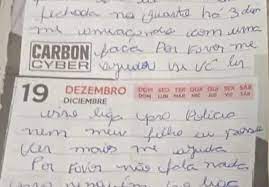 fechada no quarto há 3 dias
me ameaçando com uma
CARBON faca Por Favor me
CYBER ajuda se vc ler
19 DEZEMBRO DOM SEG TER QUA QUI SEX SÁB
DICIEMBRE DOM LUN MAR MIE JUE VIE SAB
isso liga pro Policia
nem meu filho eu posso
ver mais me ajuda
Por Favor não fala nada